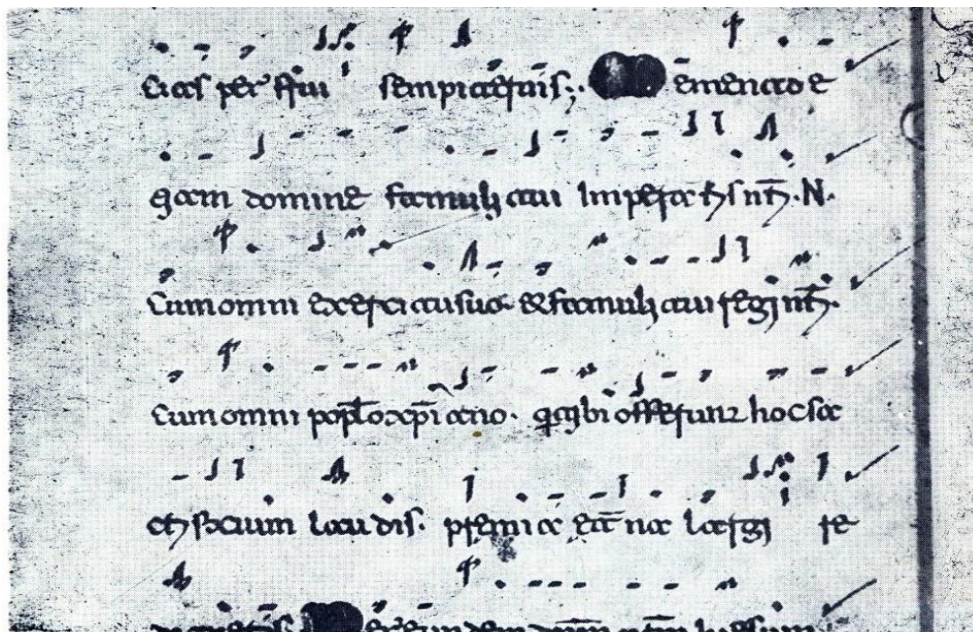 citas per frui sempiternis:. emento e
tiam domine famuli tui Imperatoris nri .N.
Cum omni exercitu suo et famuli tui regis nri.
Cum omni poplo xpiano. q tibi offerunt hoc sa
crificium laudis. premia etna largi re